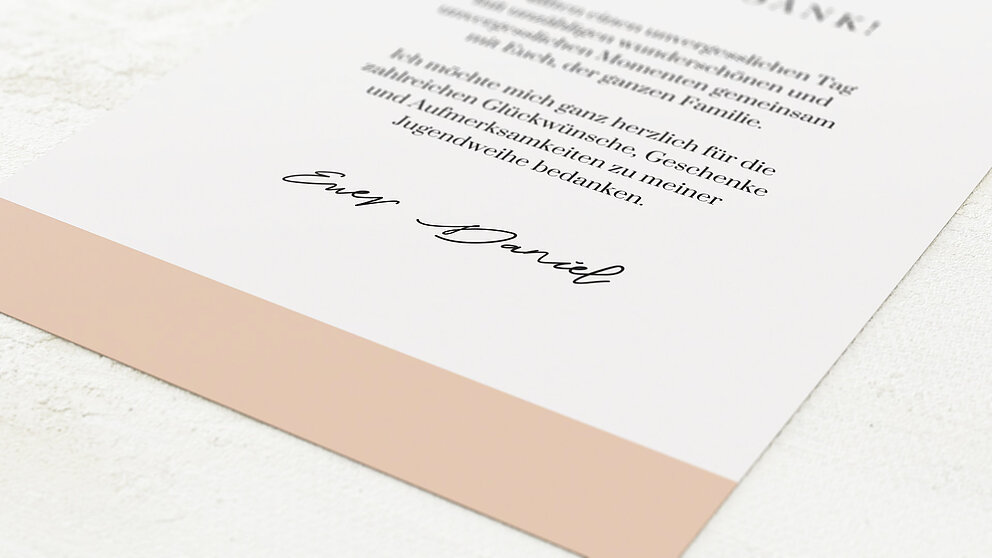 DANK!
einen unvergesslichen Tag
mit unzähligen wunderschönen und
unvergesslichen Momenten gemeinsam
mit Euch, der ganzen Familie.
Ich möchte mich ganz herzlich für die
zahlreichen Glückwünsche, Geschenke
und Aufmerksamkeiten zu meiner
Jugendweihe bedanken.
Euer Daniel